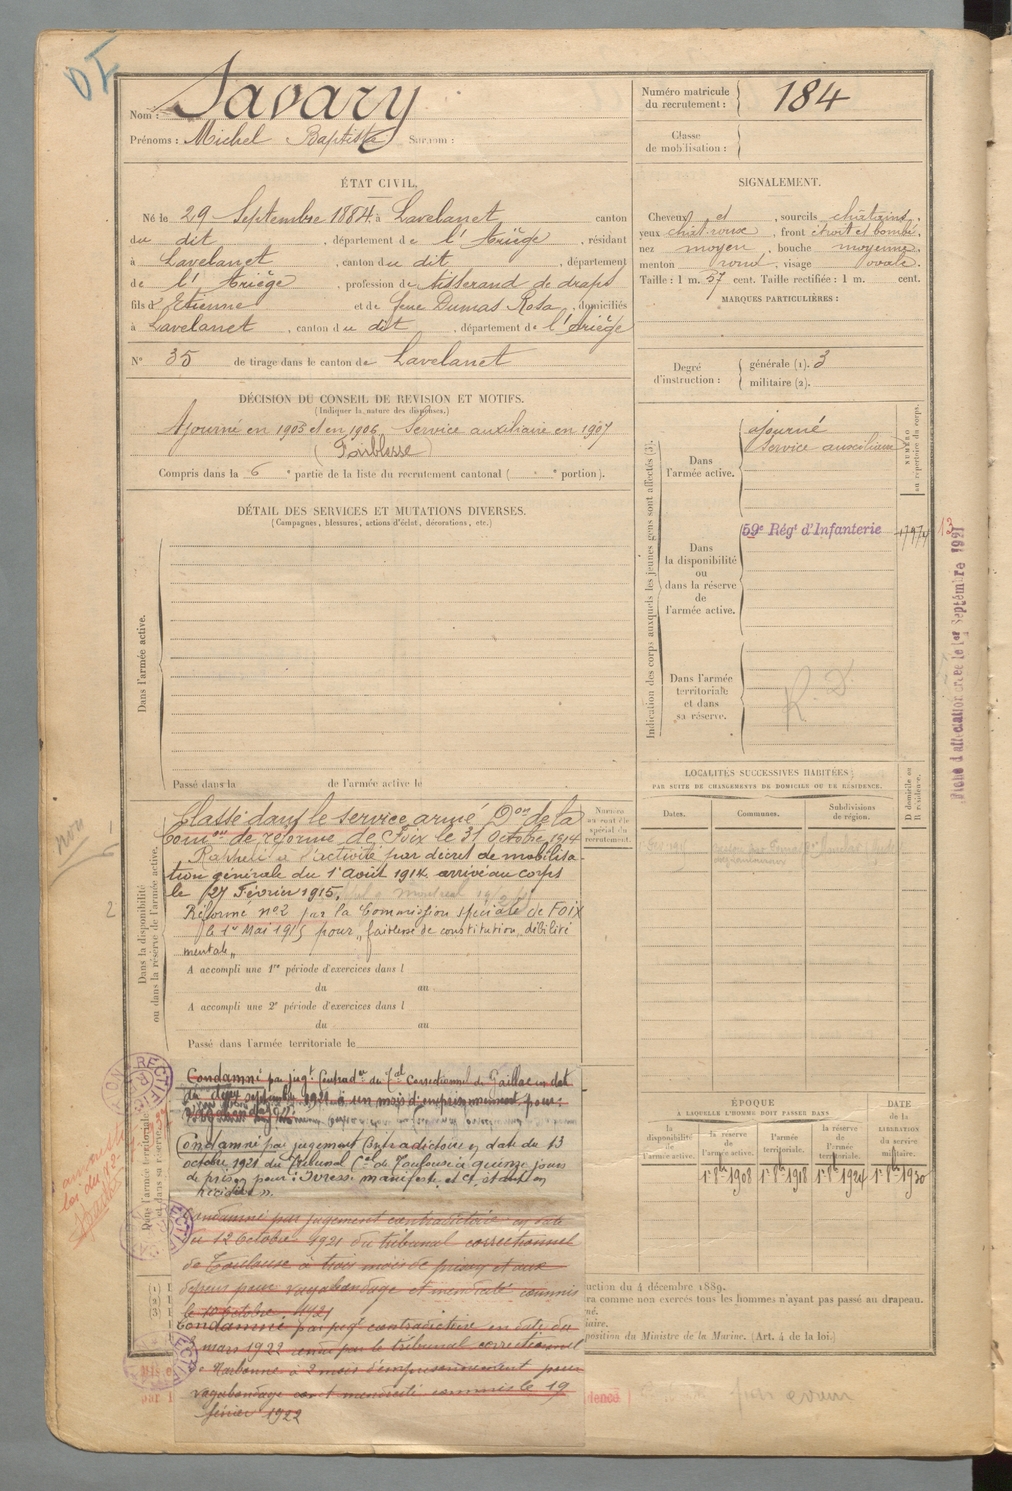 Nom : Savary
Prénoms : Michel Baptiste Surnom :
Numéro matricule
du recrutement : 184
Classe
de mobilisation :
ÉTAT CIVIL.
Né le 29 Septembre 1884, à Lavelanet canton
du dit, département de l'Ariège, résidant
à Lavelanet, canton du dit, département
de l'Ariège, profession de tisserand de draps
fils d'Etienne et de feue Dumas Rosa, domiciliés
à Lavelanet, canton du dit, département de l'Ariège
N° 35 de tirage dans le canton de Lavelanet
SIGNALEMENT.
Cheveux et, sourcils châtains,
yeux chat. roux, front étroit et bombé,
nez moyen, bouche moyenne,
menton rond, visage ovale.
Taille : 1 m. 57 cent. Taille rectifiée : 1 m. cent.
MARQUES PARTICULIÈRES :
Degré
d'instruction :
générale (1). 3
militaire (2).
DÉCISION DU CONSEIL DE REVISION ET MOTIFS.
(Indiquer la nature des dispenses.)
Ajourné en 1905 et en 1906. Service auxiliaire en 1907
(Faiblesse)
Compris dans la 6e partie de la liste du recrutement cantonal ( e portion).
DÉTAIL DES SERVICES ET MUTATIONS DIVERSES.
(Campagnes, blessures, actions d'éclat, décorations, etc.)
Dans l'armée active.
Passé dans la de l'armée active le
Indication des corps auxquels les jeunes gens sont affectés (3).
NUMÉRO
au répertoire du corps.
Dans
l'armée active.
ajourné
Service auxiliaire
Dans
la disponibilité
ou
dans la réserve
de
l'armée active.
59e Régt d'Infanterie
13
Dans l'armée
territoriale
et dans
sa réserve.
R. D.
Fiche d'affectation créée le 1er Septembre 1921
LOCALITÉS SUCCESSIVES HABITÉES
PAR SUITE DE CHANGEMENTS DE DOMICILE OU DE RÉSIDENCE.
Dates.
Communes.
Subdivisions
de région.
D domicile ou
R résidence.
non
1
2
Dans la disponibilité
ou dans la réserve de l'armée active.
Classé dans le service armé Don de la
Comon de réforme de Foix le 31 octobre 1914
Rappelé à l'activité par décret de mobilisa-
tion générale du 1er Août 1914. arrivé au corps
le 27 Février 1915.
Réformé n°2 par la Commission spéciale de FOIX
le 1er Mai 1915 pour "faiblesse de constitution, débilité
mentale"
A accompli une 1re période d'exercices dans l
du au
A accompli une 2e période d'exercices dans l
du au
Passé dans l'armée territoriale le
Dans l'armée territoriale
et dans sa réserve.
Condamné par jugt Contradre du Tal Correctionnel de Gaillac en dat
du deux septembre 1921 à un mois d'emprisonnement pour :
Condamné par jugement Contradictoire en date du 13
octobre 1921 du Tribunal Cel de Toulouse à quinze jours
de prison pour : Ivresse manifeste et ct, étant en
récidive.
Condamné par jugement contradictoire en date
du 12 Octobre 1921 du tribunal correctionnel
de Toulouse à trois mois de prison et aux
dépens pour vagabondage et mendicité commis
le 10 octobre 1921
Condamné par jugt contradictoire en date du
mars 1922 rendu par le tribunal correctionnel
de Narbonne à 2 mois d'emprisonnement pour
vagabondage et mendicité commis le 19
février 1922
ÉPOQUE
A LAQUELLE L'HOMME DOIT PASSER DANS
la
disponibilité
de
l'armée active.
la réserve
de
l'armée active.
l'armée
territoriale.
la réserve
de
l'armée
territoriale.
DATE
de la
LIBÉRATION
du service
militaire.
1er 8bre 1908
1er 8bre 1918
1er 8bre 1924
1er 8bre 1930
uction du 4 décembre 1889.
ra comme non exercés tous les hommes n'ayant pas passé au drapeau.
né.
iaire.
position du Ministre de la Marine. (Art. 4 de la loi.)